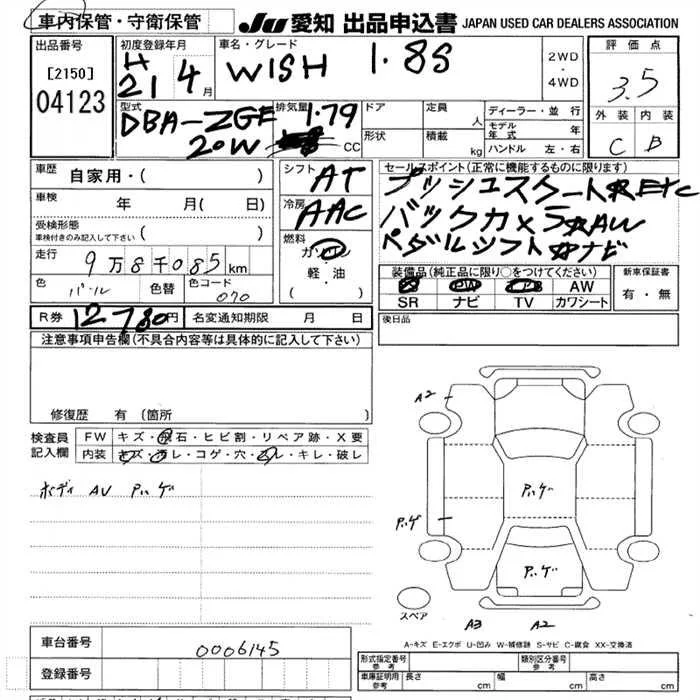 車内保管・守衛保管
JU 愛知 出品申込書 JAPAN USED CAR DEALERS ASSOCIATION
出品番号
[2150]
04123
初度登録年月
H
21 4 月
車名・グレード
WISH 1.8S
2WD
・
4WD
評価点
3.5
外装 内装
C B
型式
DBA-ZGE
20W
排気量
1.79
CC
ドア
定員
人
形状
積載
kg
ディーラー・並行
モデル年式 年
ハンドル 左・右
車歴
自家用・( )
車検 年 月(日)
受検形態
車検付きのみ記入して下さい ( )
走行 9万8千085 km
色 パール 色替 色コード 070
シフト AT
冷房 AAC
燃料
ガソリン
軽・油
( ・ )
セールスポイント(正常に機能するものに限ります)
プッシュスタート☆ETC
バックカメラ☆AW
ペダルシフト☆ナビ
装備品(純正品に限り○をつけてください)
PS PW AW
SR ナビ TV カワシート
新車保証書
有・無
R券 12,780円
名変通知期限 月 日
後日品
注意事項申告欄(不具合内容等は具体的に記入して下さい)
修復歴 有(箇所 )
検査員
記入欄
FW キズ・飛石・ヒビ割・リペア跡・X要
内装 キズ・汚レ・コゲ・穴・スレ・キレ・破レ
ボディ AU Pハゲ
A2
Pハゲ
Pハゲ
Pハゲ
スペア
A3 A2
A-キズ E-エクボ U-凹み W-補修跡 S-サビ C-腐食 XX-交換済
車台番号 0006145
登録番号
形式指定番号
参考
類別区分番号
参考
車庫証明用
参考
長さ cm 幅 cm 高さ cm